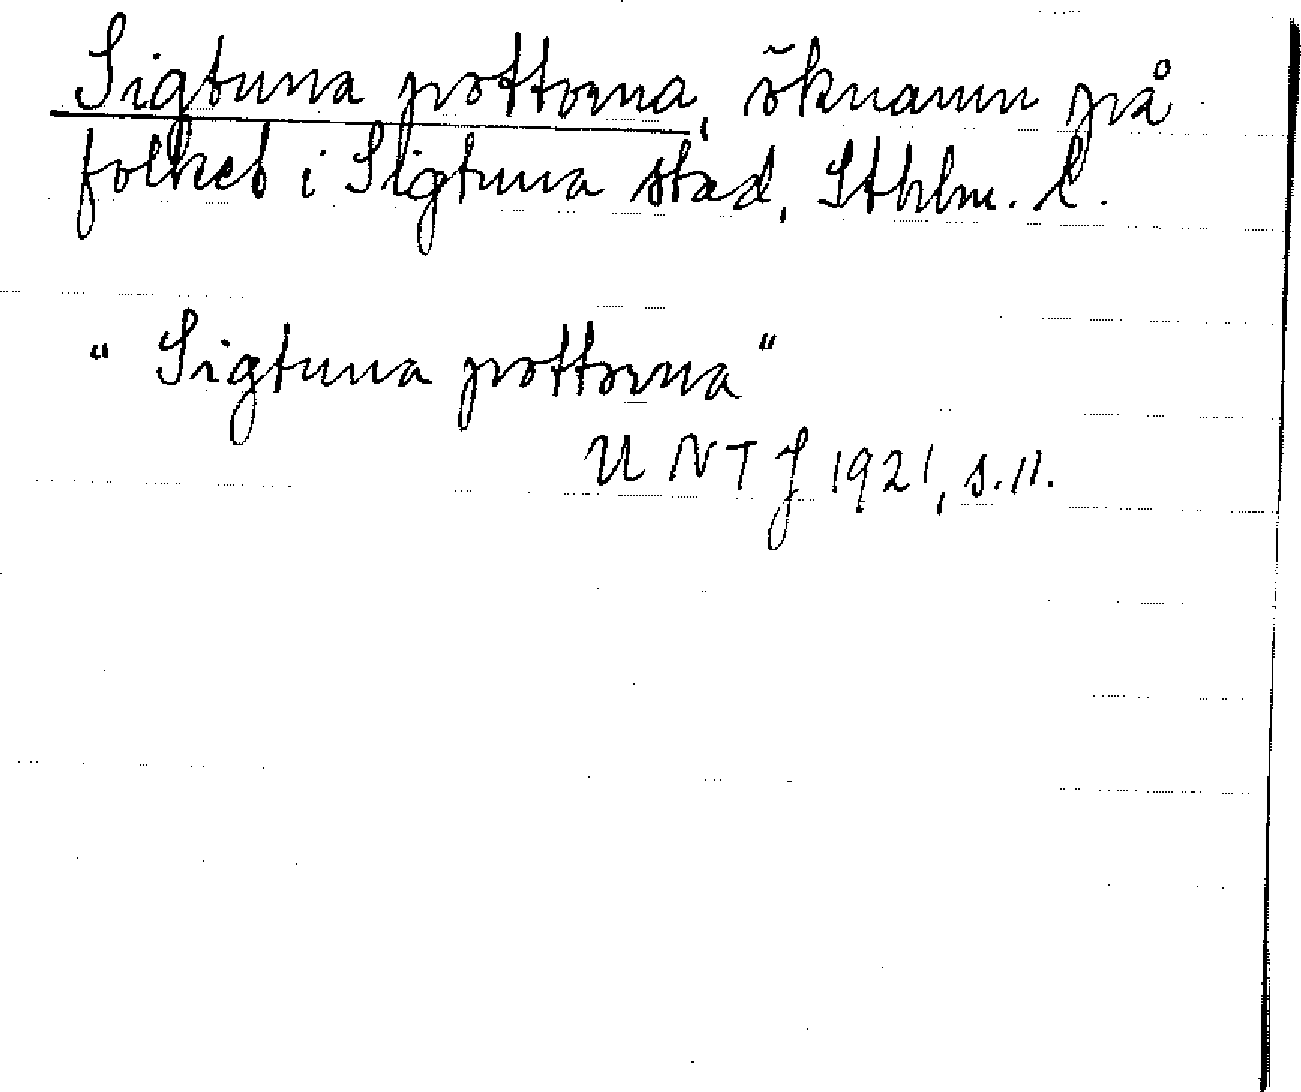 Sigtuna pottorna, öknamn på
folket i Sigtuna stad, Sthlm. l.
" Sigtuna pottorna "
U N T J 1921, s. 11.